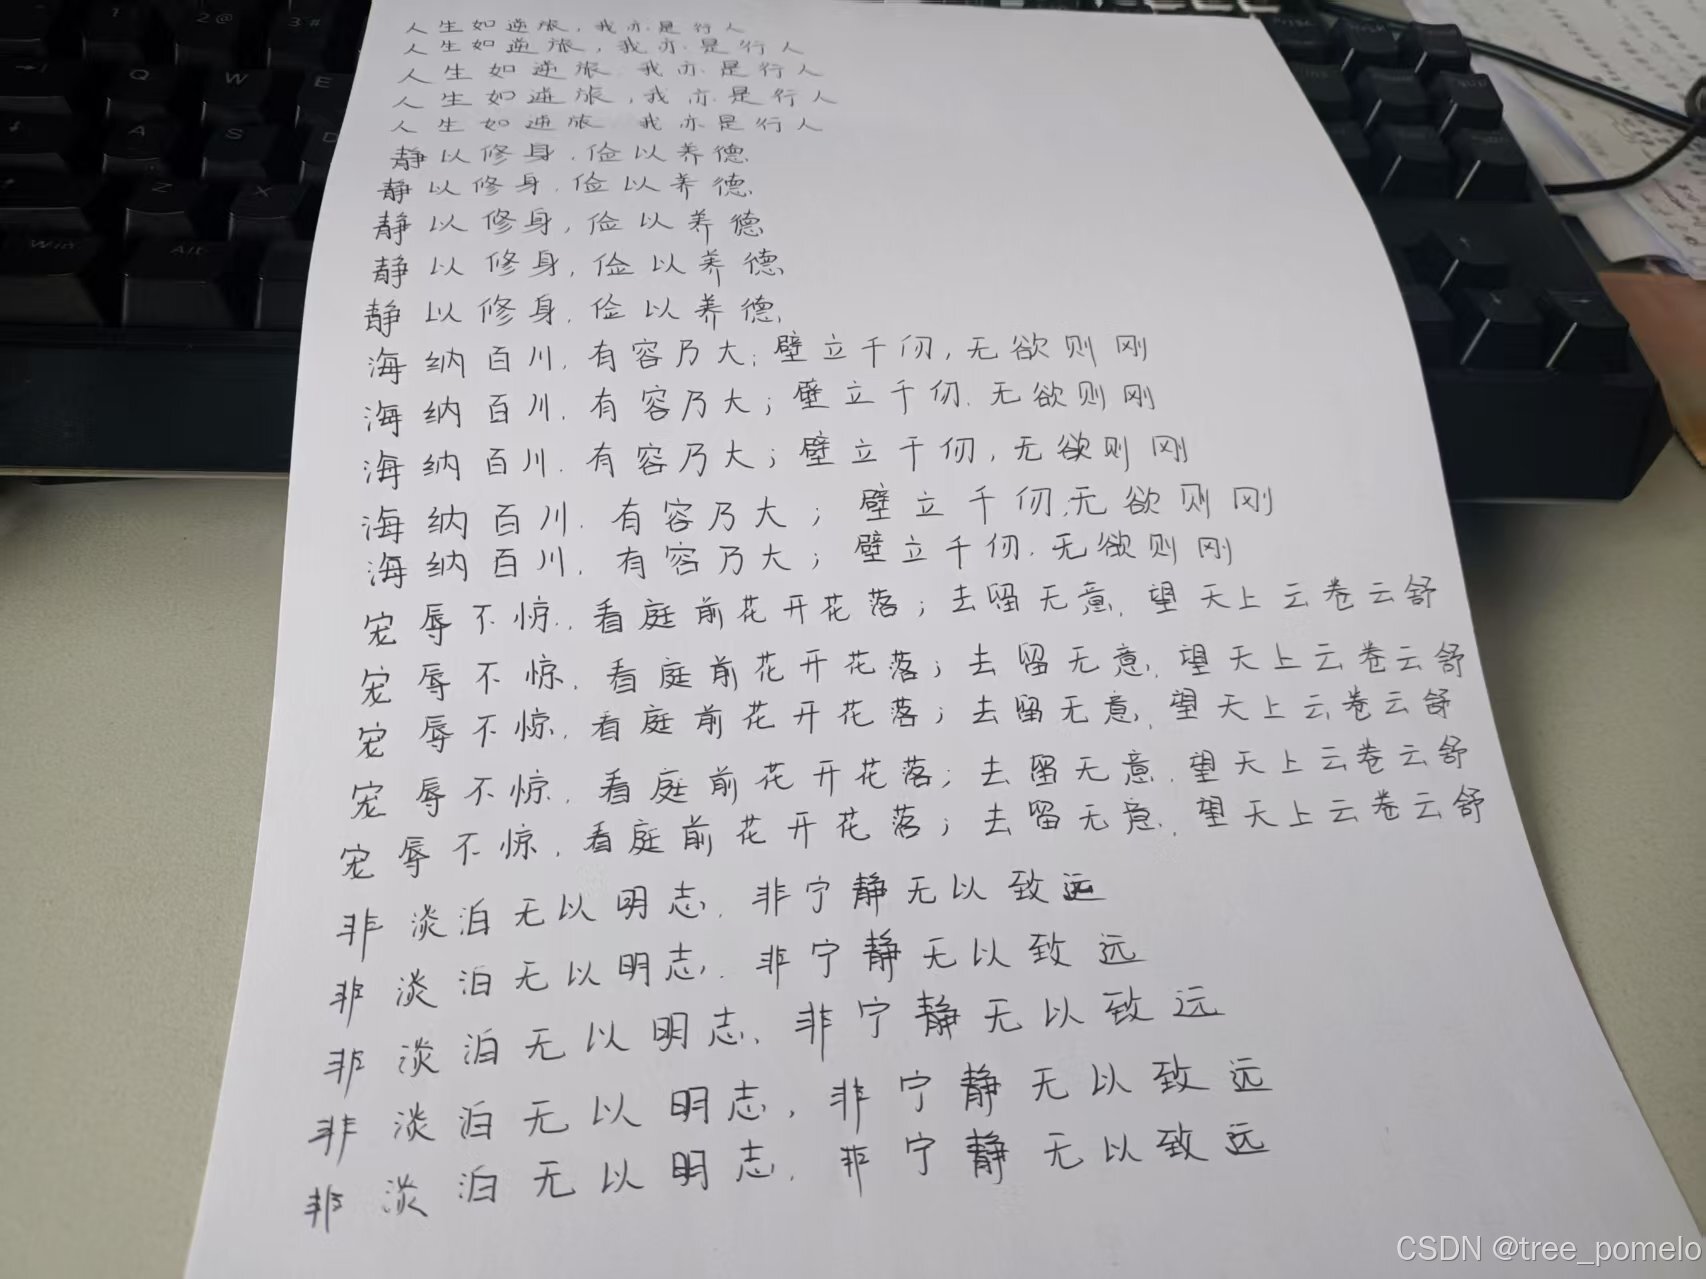 人生如逆旅，我亦是行人
人生如逆旅，我亦是行人
人生如逆旅 我亦是行人
人生如逆旅，我亦是行人
人生如逆旅 我亦是行人
静以修身，俭以养德
静以修身，俭以养德
静以修身，俭以养德
静以修身，俭以养德
静以修身，俭以养德
海纳百川，有容乃大；壁立千仞，无欲则刚
海纳百川，有容乃大；壁立千仞，无欲则刚
海纳百川，有容乃大；壁立千仞，无欲则刚
海纳百川，有容乃大；壁立千仞，无欲则刚
海纳百川，有容乃大；壁立千仞，无欲则刚
宠辱不惊，看庭前花开花落；去留无意，望天上云卷云舒
宠辱不惊，看庭前花开花落；去留无意，望天上云卷云舒
宠辱不惊，看庭前花开花落；去留无意，望天上云卷云舒
宠辱不惊，看庭前花开花落；去留无意，望天上云卷云舒
宠辱不惊，看庭前花开花落；去留无意，望天上云卷云舒
非淡泊无以明志，非宁静无以致远
非淡泊无以明志，非宁静无以致远
非淡泊无以明志，非宁静无以致远
非淡泊无以明志，非宁静无以致远
非淡泊无以明志，非宁静无以致远
1 2@ 3#
Q W E
A S D
Z X
Win Alt
CSDN @tree_pomelo